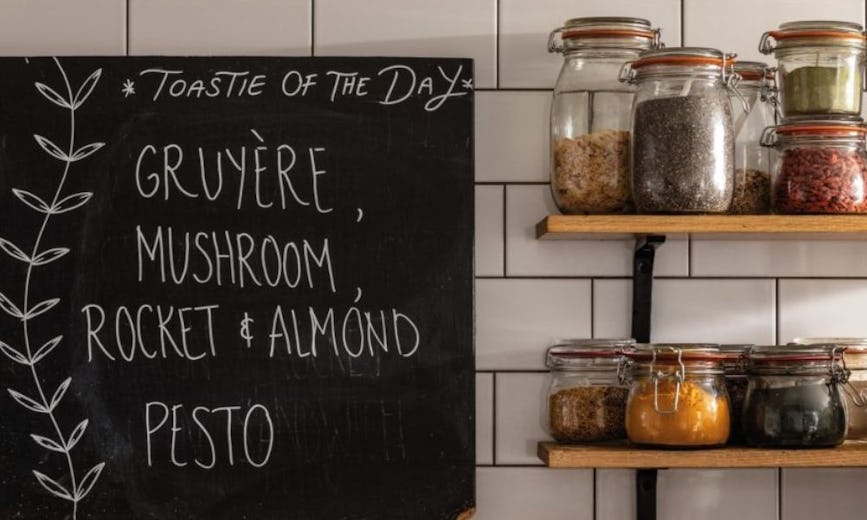 * TOASTIE OF THE DAY *
GRUYÈRE,
MUSHROOM,
ROCKET & ALMOND
PESTO